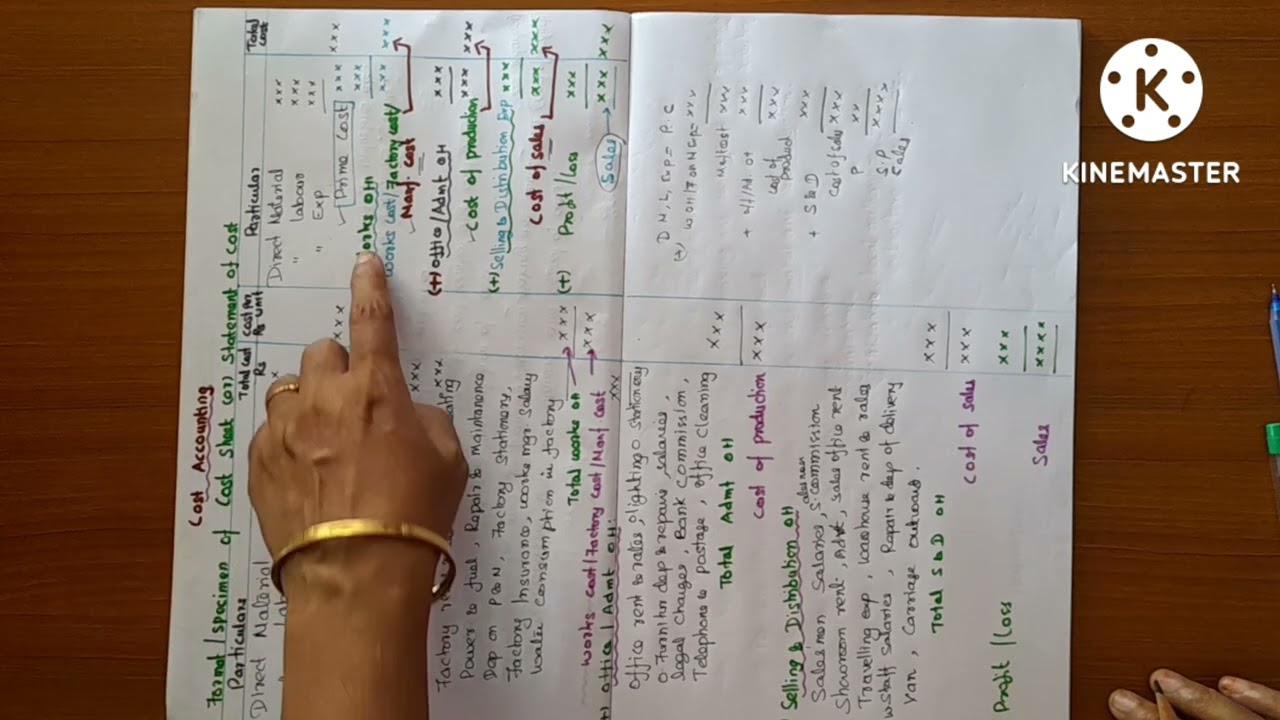 Cost Accounting
Format / Specimen of Cost Sheet (or) Statement of Cost
Particulars Total Cost Rs Cost Per Unit Rs
Direct Material
Factory
Power & fuel, Repair & Maintanance
Dep on P&M, Factory Stationery,
Factory Insurance, works mgr. Salary
Water Consumption in factory
Total works OH xxx
Works Cost/Factory Cost/Manf Cost xxx
Office / Admt OH: xx
Office rent & rates & lighting & stationery
& Furniture dep & repairs, salaries,
legal charges, Bank Commission,
Telephone & postage, office cleaning
Total Admt OH xxx
Cost of production xxx
Selling & Distribution OH
Salesmen Salaries, S. commission
Showroom rent, Advt, Sales office rent
Travelling exp, Warehouse rent & rates
w. staff salaries, Repair & dep of delivery
Van, Carriage outward.
Total S & D OH xxx
Cost of sales xxx
Profit / Loss xxx
Sales xxxx
Particular Total Cost
Direct Material xxx
" Labour xxx
" Exp xxx
Prime Cost xxx xxx
Works OH xxx
Works cost/Factory cost/ xxx xxx
Manf. Cost
(+) Office/Admt OH xxx
Cost of production xxx xxx
(+) Selling & Distribution Exp xxx
Cost of Sales xxx xxx
(+) Profit/Loss xxx
Sales xxx xxx
D M, L, Exp = P.C
(+) WOH/F OH
xxx
xxx
cost of
product xxx
+ S & D xxx
Cost of Sales xxx
P xxxx
S.P
Sales
KINEMASTER